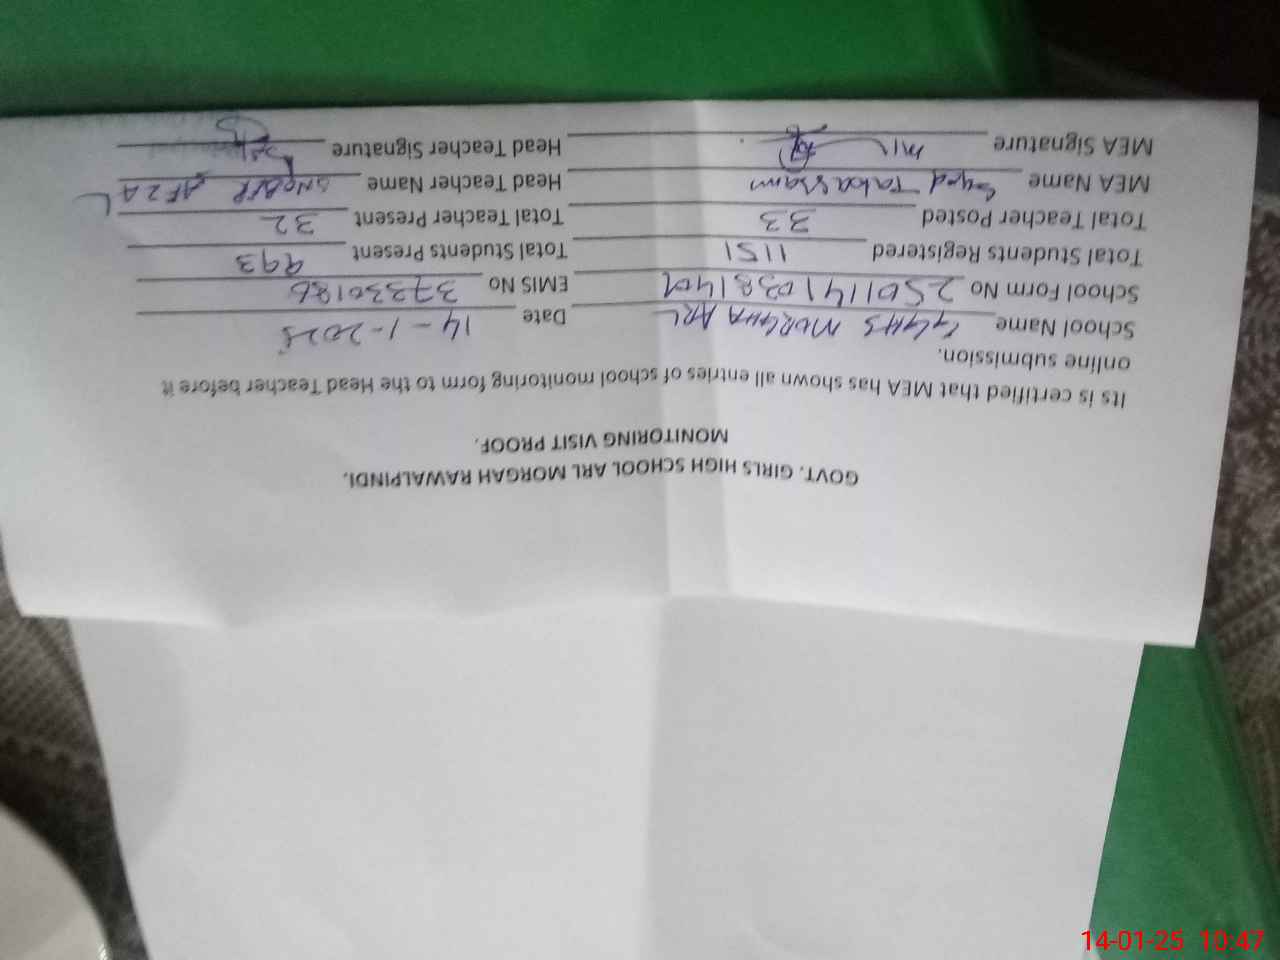 GOVT. GIRLS HIGH SCHOOL ARL MORGAH RAWALPINDI.
MONITORING VISIT PROOF.
Its is certified that MEA has shown all entries of school monitoring form to the Head Teacher before it
online submission.
School Name GGHS MORGHA ARL Date 14-1-2025
School Form No EMIS No 37330186
Total Students Registered 1151 Total Students Present 993
Total Teacher Posted 33 Total Teacher Present 32
MEA Name Syed Tabassam Head Teacher Name AFZAL
MEA Signature Head Teacher Signature
14-01-25 10:47